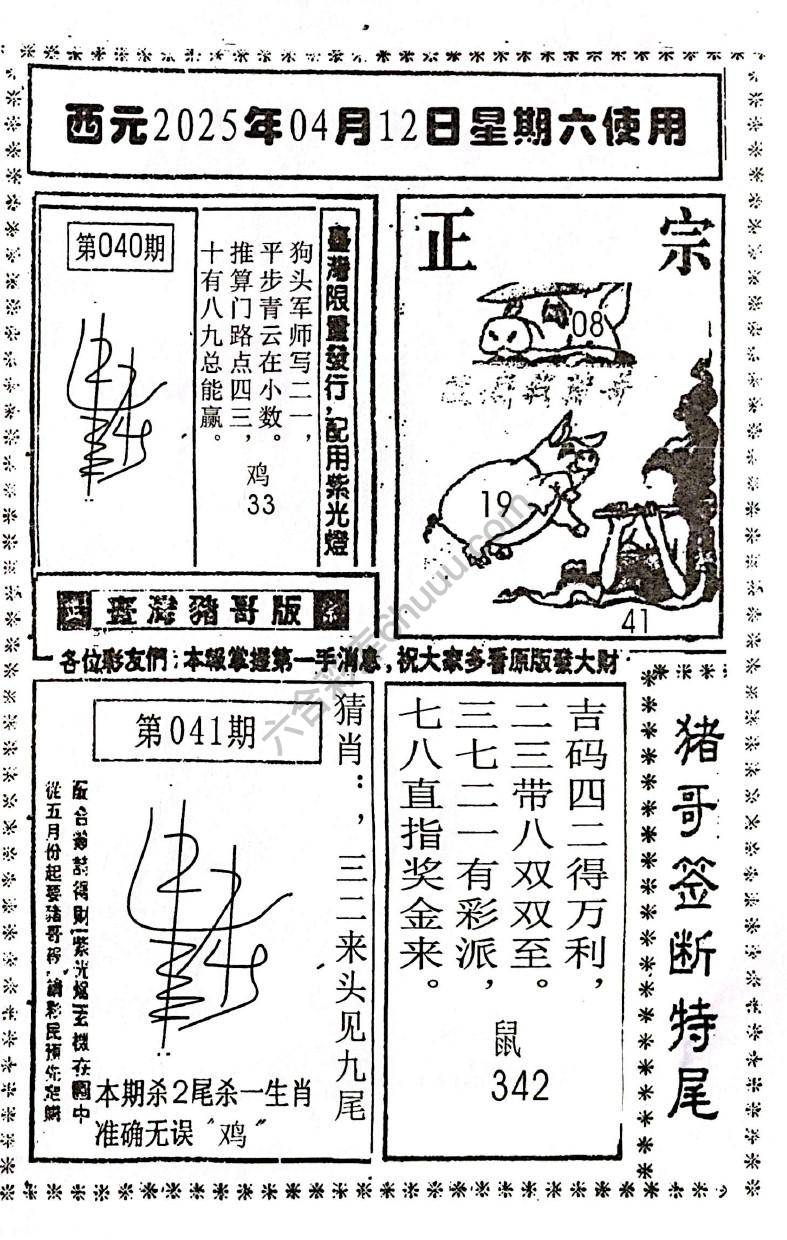 西元2025年04月12日星期六使用
第040期
臺灣限量發行，配用紫光燈
狗头军师写二一，
平步青云在小数。
推算门路点四三，
十有八九总能赢。
鸡
33
正宗
08
19
41
臺灣豬哥版
各位彩友們：本報掌握第一手消息，祝大家多看原版發大財
第041期
猜肖：，三二来头见九尾
本期杀2尾杀一生肖
准确无误“鸡”
吉码四二得万利，
二三带八双双至。
三七二一有彩派，
七八直指奖金来。
鼠
342
猪哥签断特尾
六合彩库6huuu.com